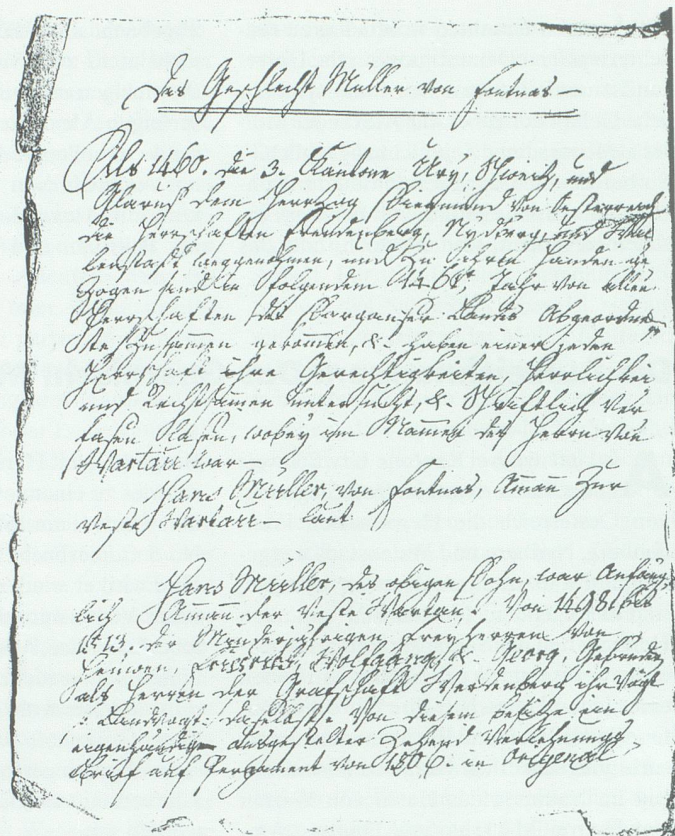 Das Geschlecht Müller von Fontnas –
Als 1460. die 3. Kantone Ury, Schweitz, und
Glarus dem Herrzog Siegmund von Oesterreich
die Herrschaften Freudenberg, Nydberg, und
lenstatt weggenohmen, und zu Ihren Handen ge
zogen sind in folgendem Jahr von allen
Herrschaften des Sarganser Lands Abgeordne
te zusammen gekommen, & haben einer jeden
Herrschaft ihre Gerechtigkeiten, Herrlichkei
und Rechtsamen untersucht, & Schriftlich ver
fasen lasen, wobey im Namen des Herrn von
Wartau war –
Hans Müller, von Fontnas, Aman zur
Veste Wartau – laut
Hans Müller, des obigen Sohn, war Anfäng
lich Aman der Veste Wartau. Von 1498 bis
1513. der Minderjährigen Freyherren von
Heuwen, Wolfgang, & Georg, Gebrüder
als Herren der Grafschaft Werdenberg ihr Vogt
: Landvogt: daselbst. Von diesem besitze ein
eigenhändig ausgestelter Zehend Verleihungs
Brief auf Pergament von in Original